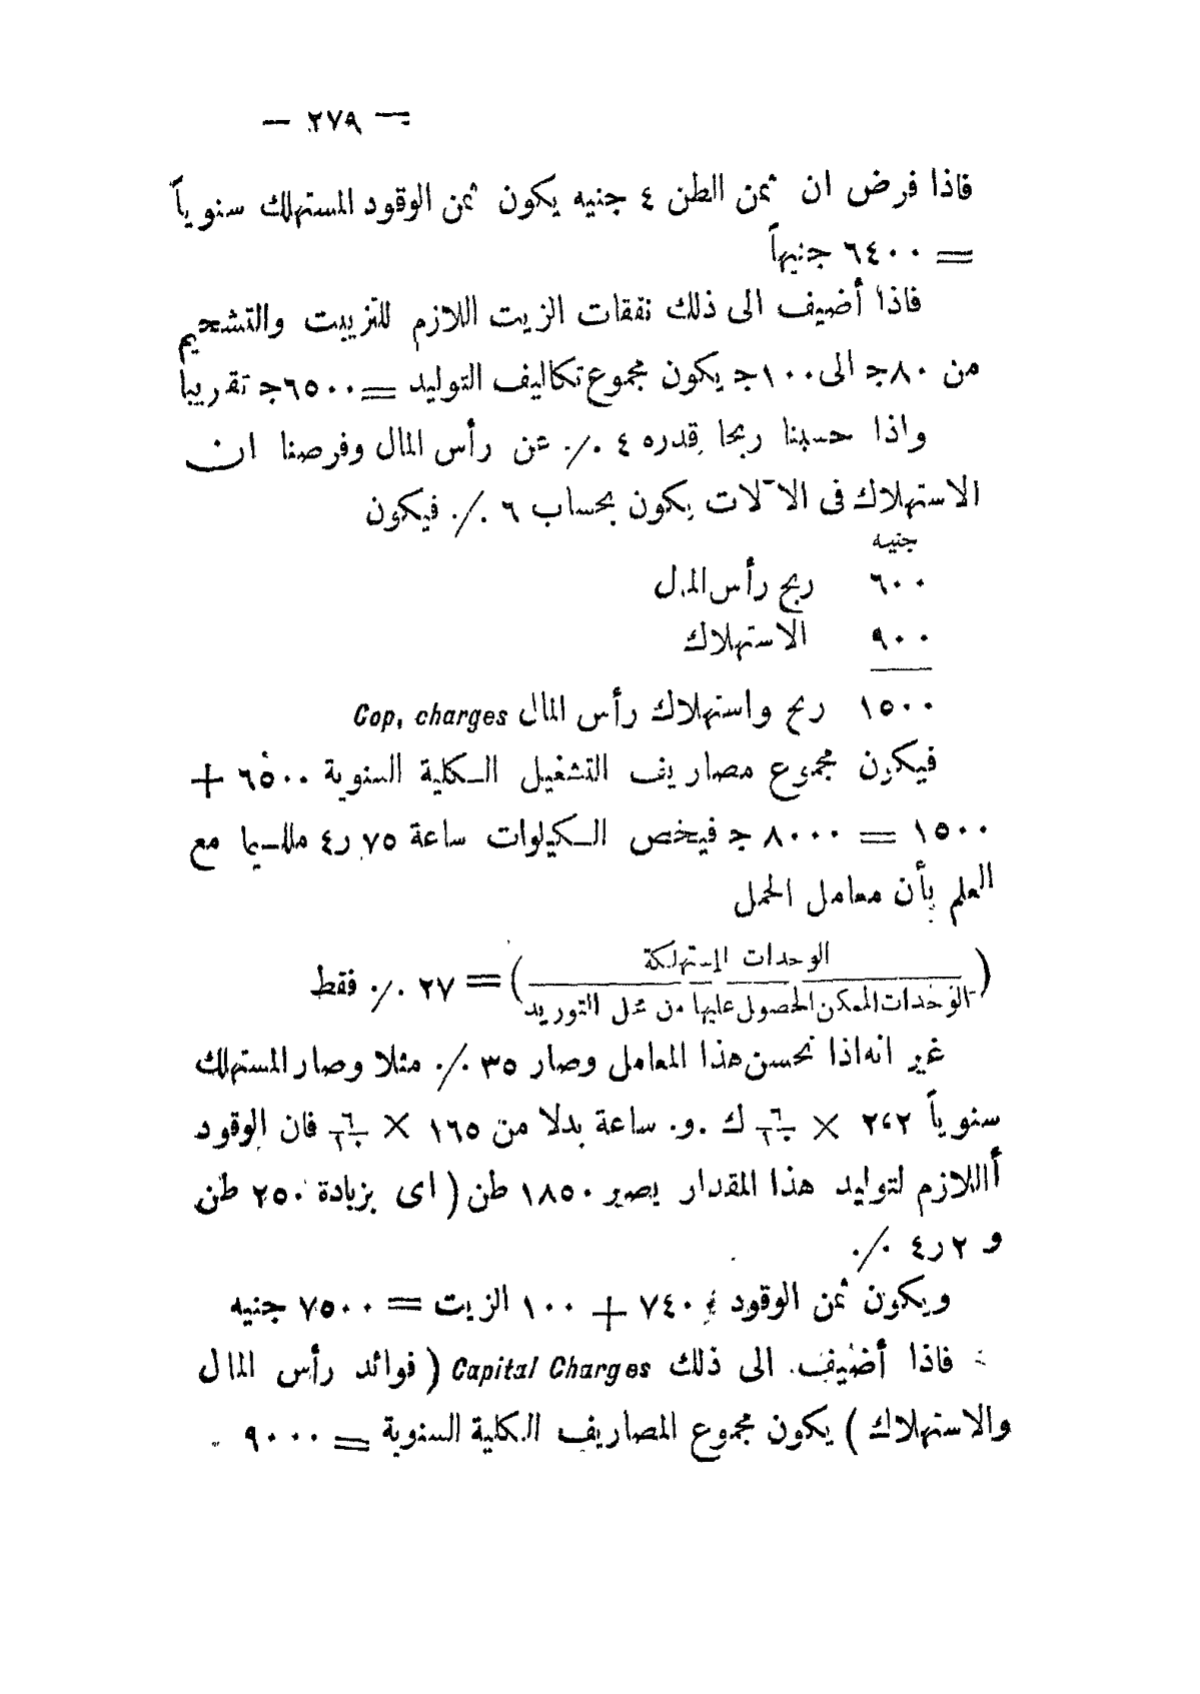 — ٢٧٩ —
فاذا فرض ان ثمن الطن ٤ جنيه يكون ثمن الوقود المستهلك سنوياً
= ٦٤٠٠ جنيهاً
فاذا أضيف الى ذلك نفقات الزيت اللازم للتزييت والتشحيم
من ٨٠ج الى ١٠٠ج يكون مجموع تكاليف التوليد = ٦٥٠٠ج تقريبا
واذا حسبنا ربحا قدره ٤ ٪ عن رأس المال وفرضنا ان
الاستهلاك فى الآلات يكون بحساب ٦ ٪ فيكون
جنيه
٦٠٠ ربح رأس المال
٩٠٠ الاستهلاك
١٥٠٠ ربح واستهلاك رأس المال Cop, charges
فيكون مجموع مصاريف التشغيل الكلية السنوية ٦٥٠٠ +
١٥٠٠ = ٨٠٠٠ ج فيخص الكيلوات ساعة ٧٥ر٤ ملليما مع
العلم بأن معامل الحمل
( الوحدات المستهلكة
الوحدات الممكن الحصول عليها من محل التوريد ) = ٢٧ ٪ فقط
غير انه اذا تحسن هذا المعامل وصار ٣٥ ٪ مثلا وصار المستهلك
سنوياً ٢٤٢ × ١٠٦ ك .و. ساعة بدلا من ١٦٥ × ١٠٦ فان الوقود
اللازم لتوليد هذا المقدار يصير ١٨٥٠ طن ( اى بزيادة ٢٥٠ طن
و ٢ر٤ ٪
ويكون ثمن الوقود ٧٤٠٠ + ١٠٠ الزيت = ٧٥٠٠ جنيه
فاذا أضيف الى ذلك Capital Charges ( فوائد رأس المال
والاستهلاك ) يكون مجموع المصاريف الكلية السنوية = ٩٠٠٠